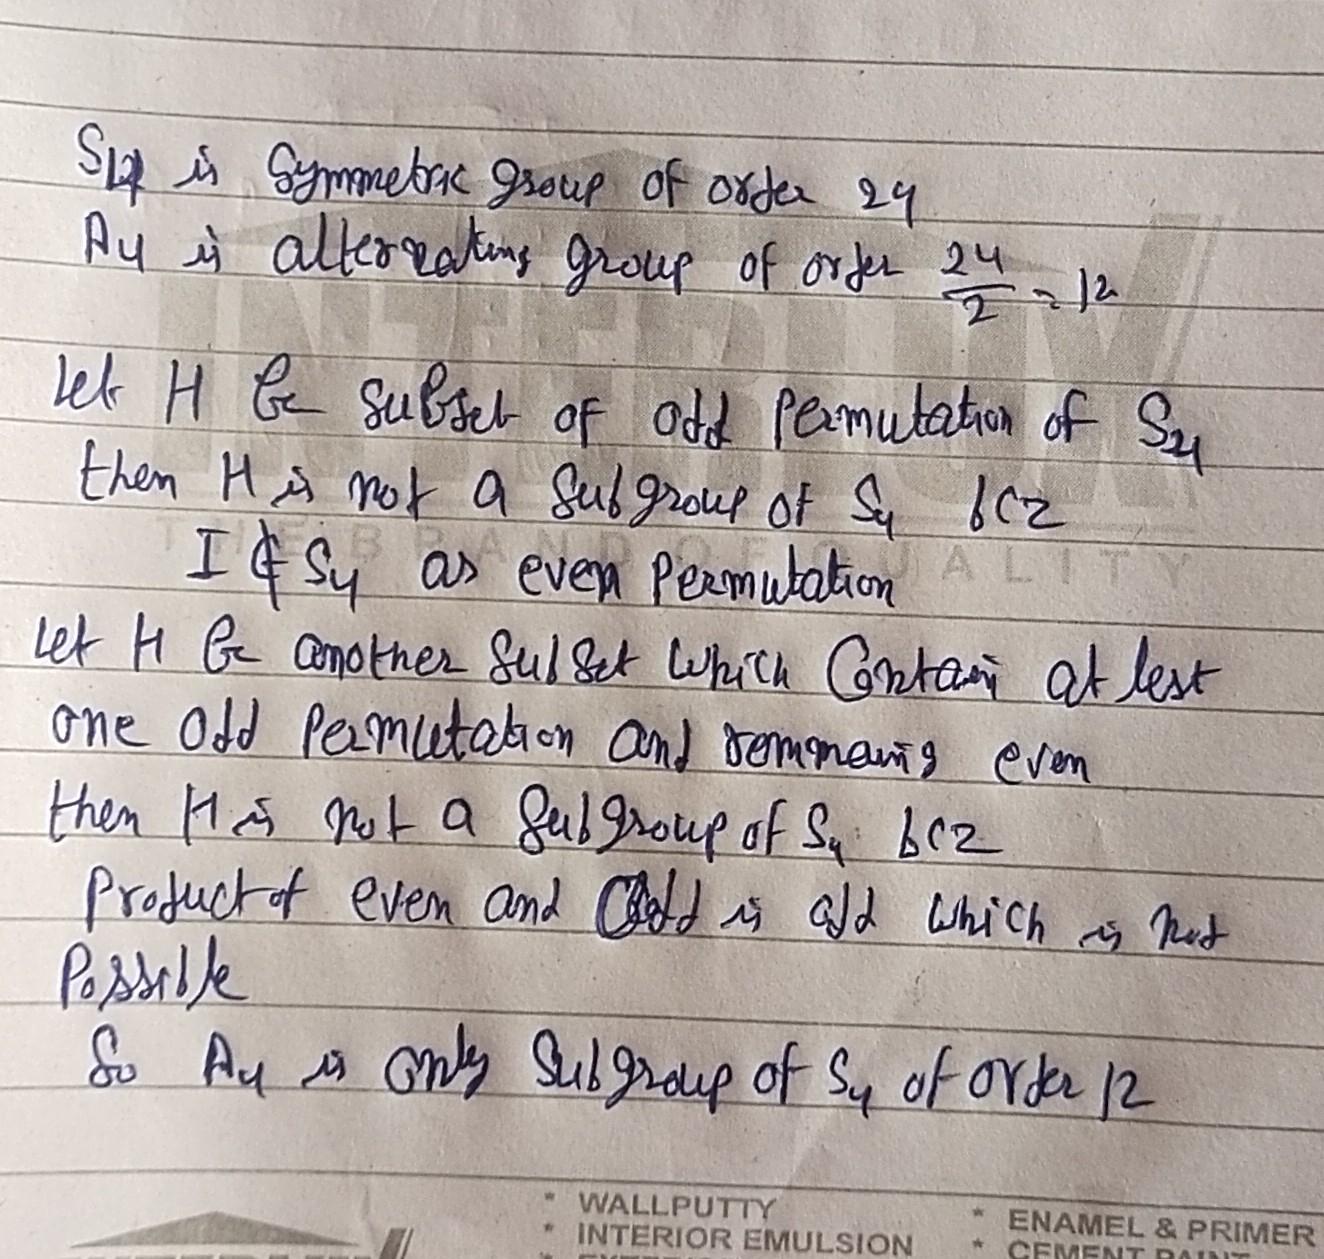 S4 is Symmetric group of order 24
A4 is alternating group of order 24/2 = 12
INTERLUX
Let H be subset of odd permutation of S4
then H is not a subgroup of S4 bcz
THE BRAND OF QUALITY
I ∉ S4 as even permutation
Let H be another subset which Contain at lest
one odd permutation and remmaing even
then H is not a subgroup of S4 bcz
Product of even and odd is odd which is not
Possible
So A4 is only Subgroup of S4 of order 12
* WALLPUTTY
* INTERIOR EMULSION
* ENAMEL & PRIMER